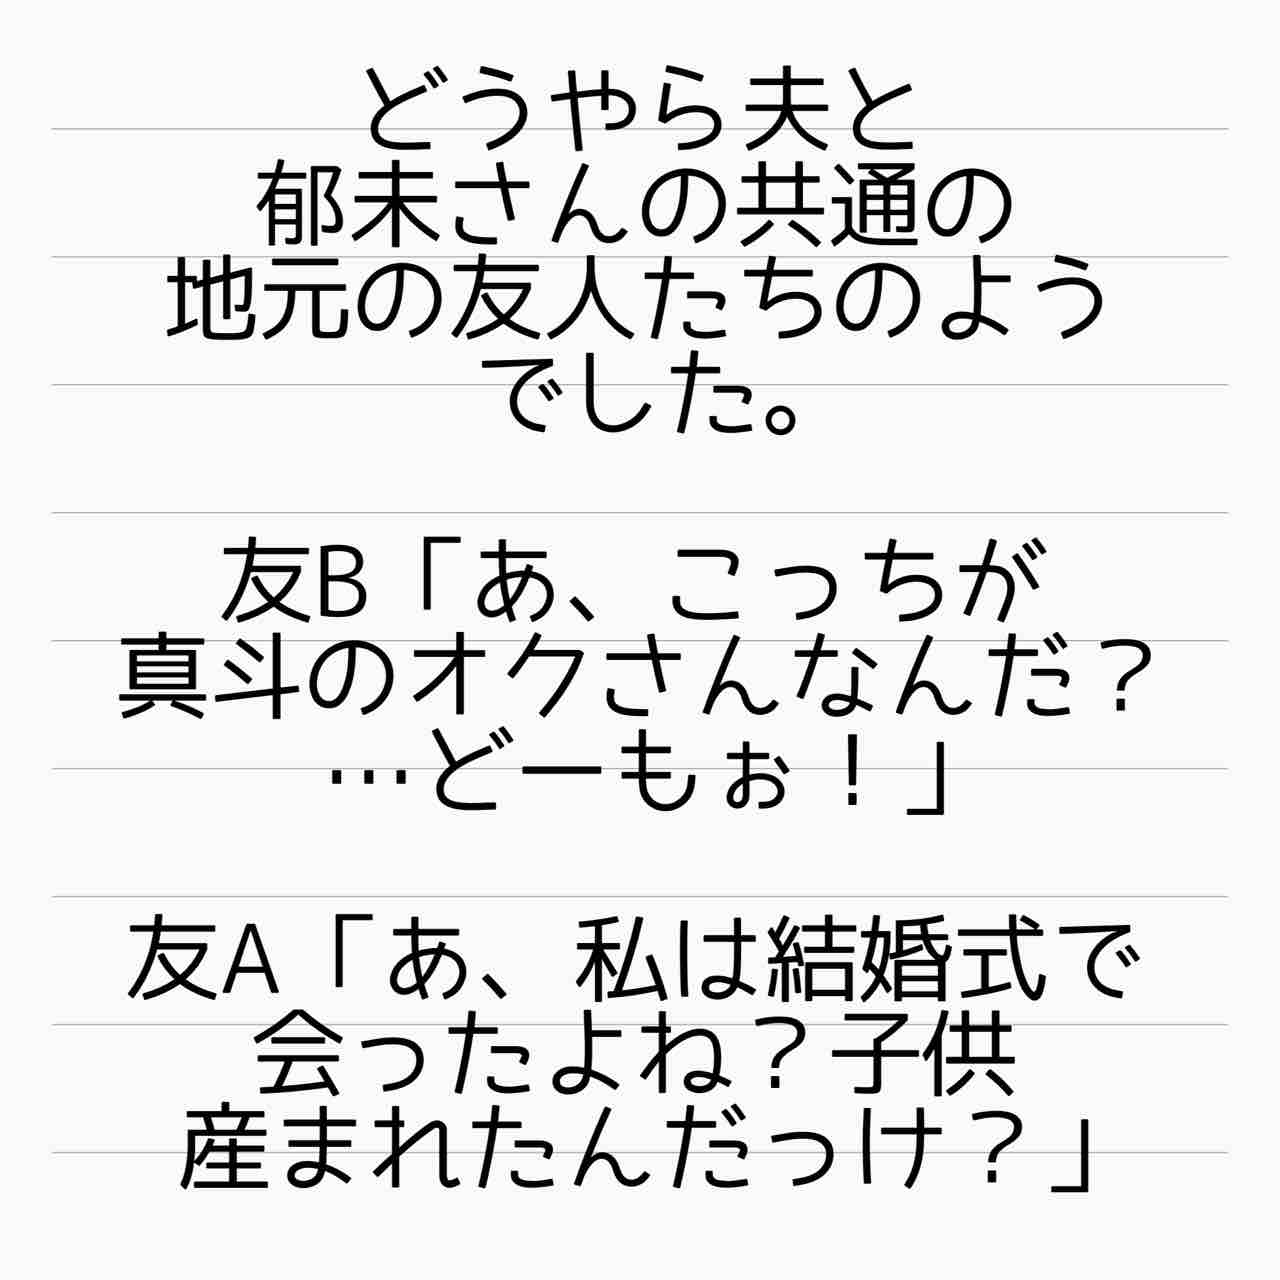 どうやら夫と
郁未さんの共通の
地元の友人たちのよう
でした。
友B「あ、こっちが
真斗のオクさんなんだ？
…どーもぉ！」
友A「あ、私は結婚式で
会ったよね？子供
産まれたんだっけ？」